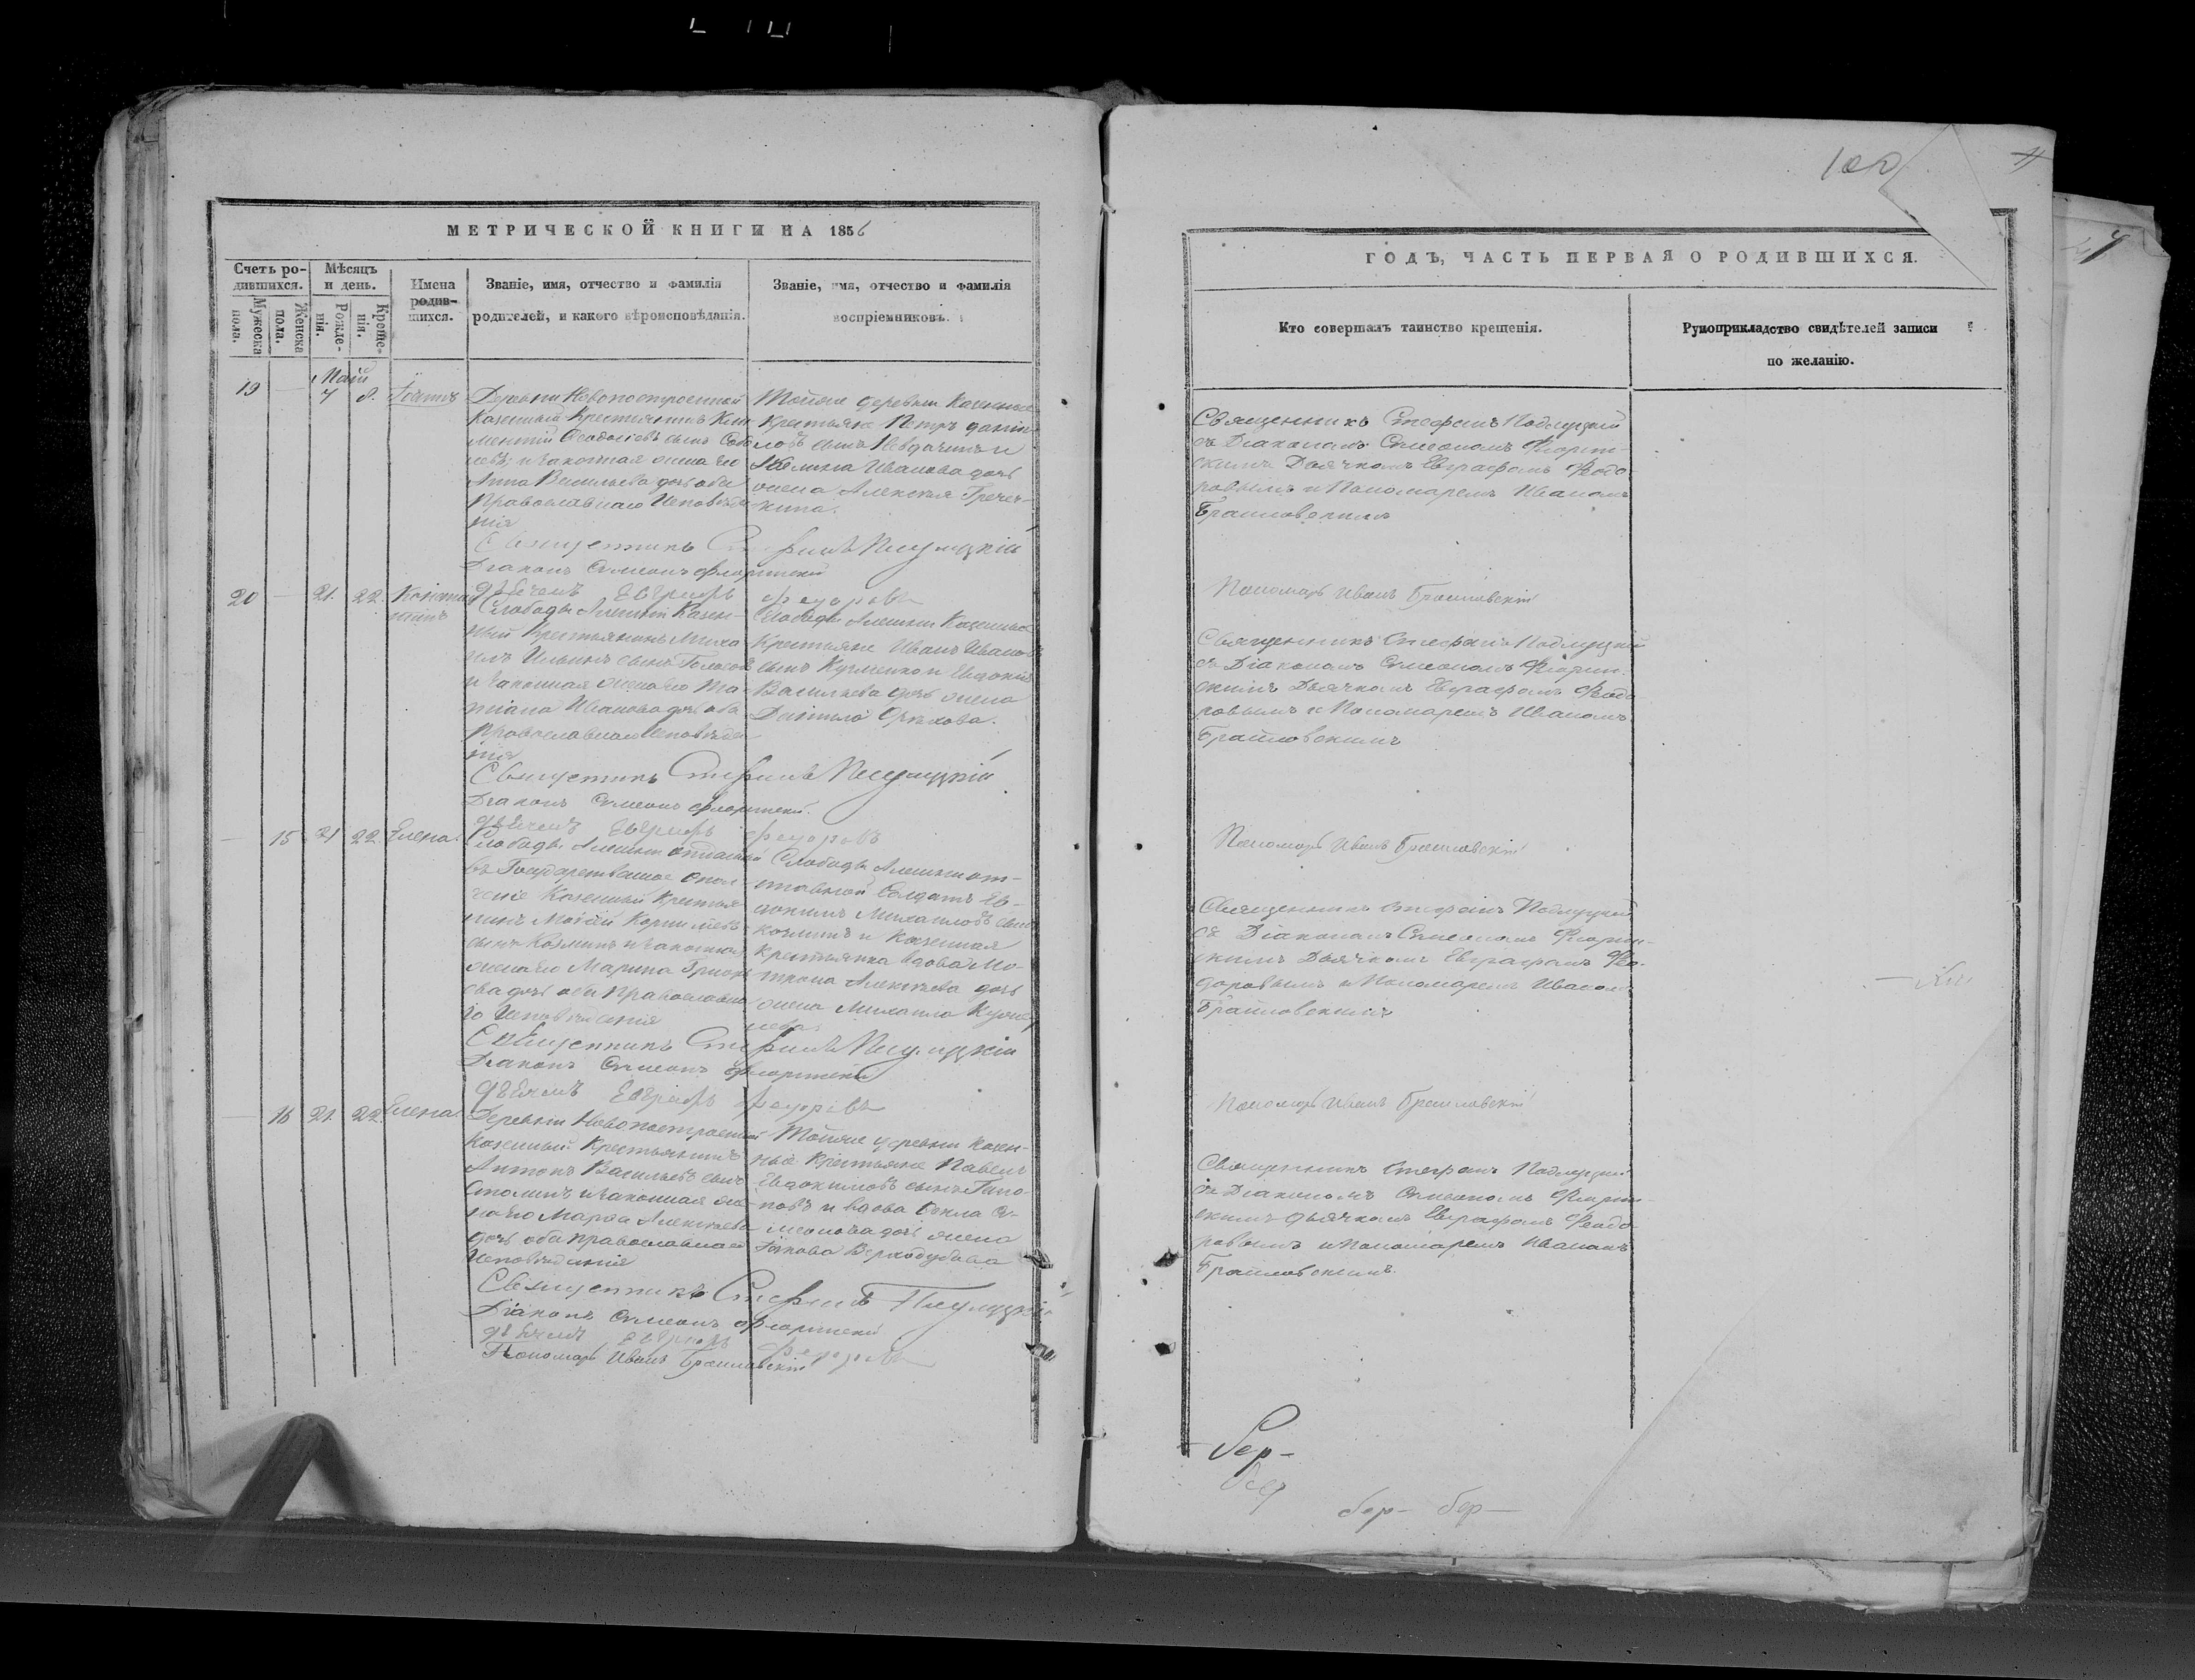 МЕТРИЧЕСКОЙ КНИГИ НА 1856
Счетъ ро-
дившихся.
Мужеска
пола.
Женска
пола.
Мѣсяцъ
и день.
Рожде-
нія.
Креще-
нія.
Имена
родив-
шихся.
Званіе, имя, отчество и фамилія
родителей, и какого вѣроисповѣданія.
Званіе, имя, отчество и фамилія
воспріемниковъ.
Май
19 — 7 8.
Деревни Новопостроенной
Казенный Крестьянинъ Кли
ментій сынъ
и законная жена его
Анна Васильева дочь оба
Православнаго Исповѣда
нія
Тойже деревни Казенные
Крестьяне Петръ Данiи
ловъ сынъ и
Иванова дочь
жена Алексѣя Гречеч-
кина.
Священникъ Стефанъ Подлуцкій
Діаконъ Симеонъ Флоринскій
Дьячекъ Евграфъ Федоровъ
20 — 21. 22. Констан
тинъ
Слободы Алешки Казен-
ный Крестьянинъ Миха
илъ Ильинъ сынъ
и законная жена его Та
тіана Иванова дочь оба
Православнаго Исповѣда
нія
Слободы Алешки Казенные
Крестьяне Иванъ Ивановъ
сынъ Кузменко и Евдокія
Васильева дочь жена
Данiила Орѣхова.
Священникъ Стефанъ Подлуцкій
Діаконъ Симеонъ Флоринскій.
Дьячекъ Евграфъ Федоровъ
— 15 21 22. Елена.
Слободы Алешки
въ Государственное Опол-
ченіе Казенный Крестья
нинъ Моѵсей
сынъ Козминъ и законная
жена его Марина
ва дочь оба Православна
го Исповѣданія
Слободы Алешки от-
ставной Солдатъ Ев-
докимъ Михайловъ сынъ
Козминъ и Казенная
крестьянка вдова Мо-
трона Алексѣева дочь
жена Михаила
Священникъ Стефанъ Подлуцкій
Діаконъ Симеонъ Флоринскій
Дьячекъ Евграфъ Федоровъ
— 16 21. 22. Елена
Деревни Новопостроенной
Казенный Крестьянинъ
Антонъ Васильевъ сынъ
и законная же
на его Марѳа Алексѣева
дочь оба православнаго
Исповѣданія
Тойже деревни Казен-
ные Крестьяне Павелъ
Евдокимовъ сынъ Гапо-
новъ и вдова Ѳекла Си-
меонова дочь жена
Іакова Верходубова
Священникъ Стефанъ Подлуцкій
Діаконъ Симеонъ Флоринскій
Дьячекъ Евграфъ Федоровъ
Пономарь Иванъ Браиловскій
100
ГОДЪ, ЧАСТЬ ПЕРВАЯ О РОДИВШИХСЯ.
Кто совершалъ таинство крещенія.
Рукоприкладство свидѣтелей записи
по желанію.
Священникъ Стефанъ Подлуцкій
съ Діакономъ Симеономъ Флорин-
скимъ Дьячкомъ Евграфомъ Федо
ровымъ и Пономаремъ Иваномъ
Браиловскимъ
Пономарь Иванъ Браиловскій
Священникъ Стефанъ Подлуцкій
съ Діакономъ Симеономъ Флорин-
скимъ Дьячкомъ Евграфомъ Федо
ровымъ и Пономаремъ Иваномъ
Браиловскимъ
Пономарь Иванъ Браиловскій
Священникъ Стефанъ Подлуцкій
съ Діакономъ Симеономъ Флорин-
скимъ Дьячкомъ Евграфомъ Фео-
доровымъ и Пономаремъ Иваномъ
Браиловскимъ
Пономарь Иванъ Браиловскій
Священникъ Стефанъ Подлуцкій
съ Діакономъ Симеономъ Флорин-
скимъ дьячкомъ Евграфомъ Феодо
ровымъ и Пономаремъ Иваномъ
Браиловскимъ.
бер-
бер
бер- бер-